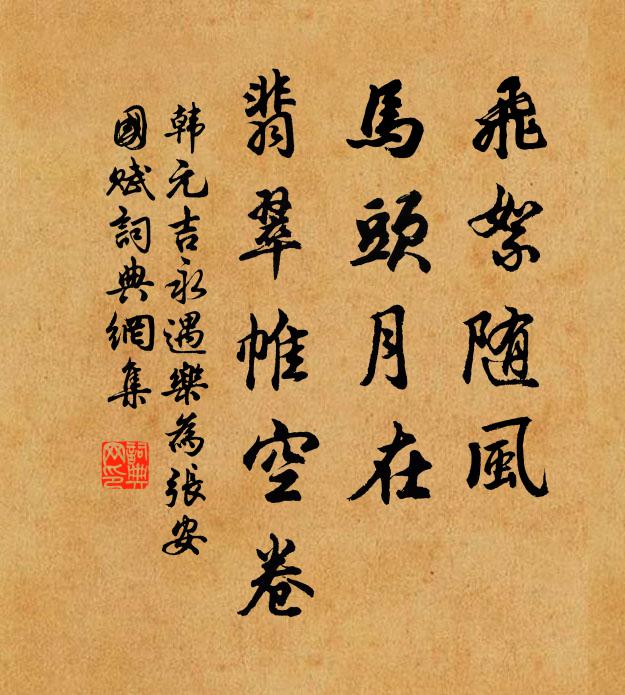 飛絮随風
馬頭月在
翡翠帷空卷
韩元吉永遇樂為張安
國赋詞典網集
詞典
网印